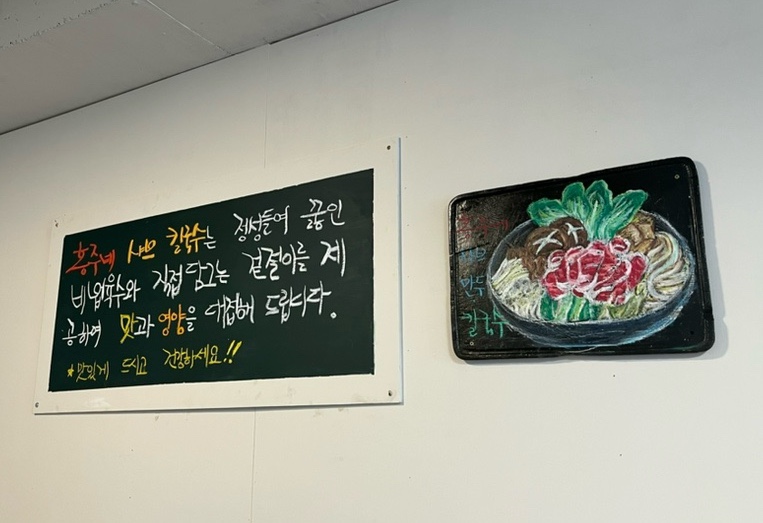 홍주네 샤브 칼국수는 정성들여 끓인
비법육수와 직접 담그는 겉절이를 제
공하여 맛과 영양을 대접해 드립니다.
*맛있게 드시고 건강하세요!!
만두
칼국수